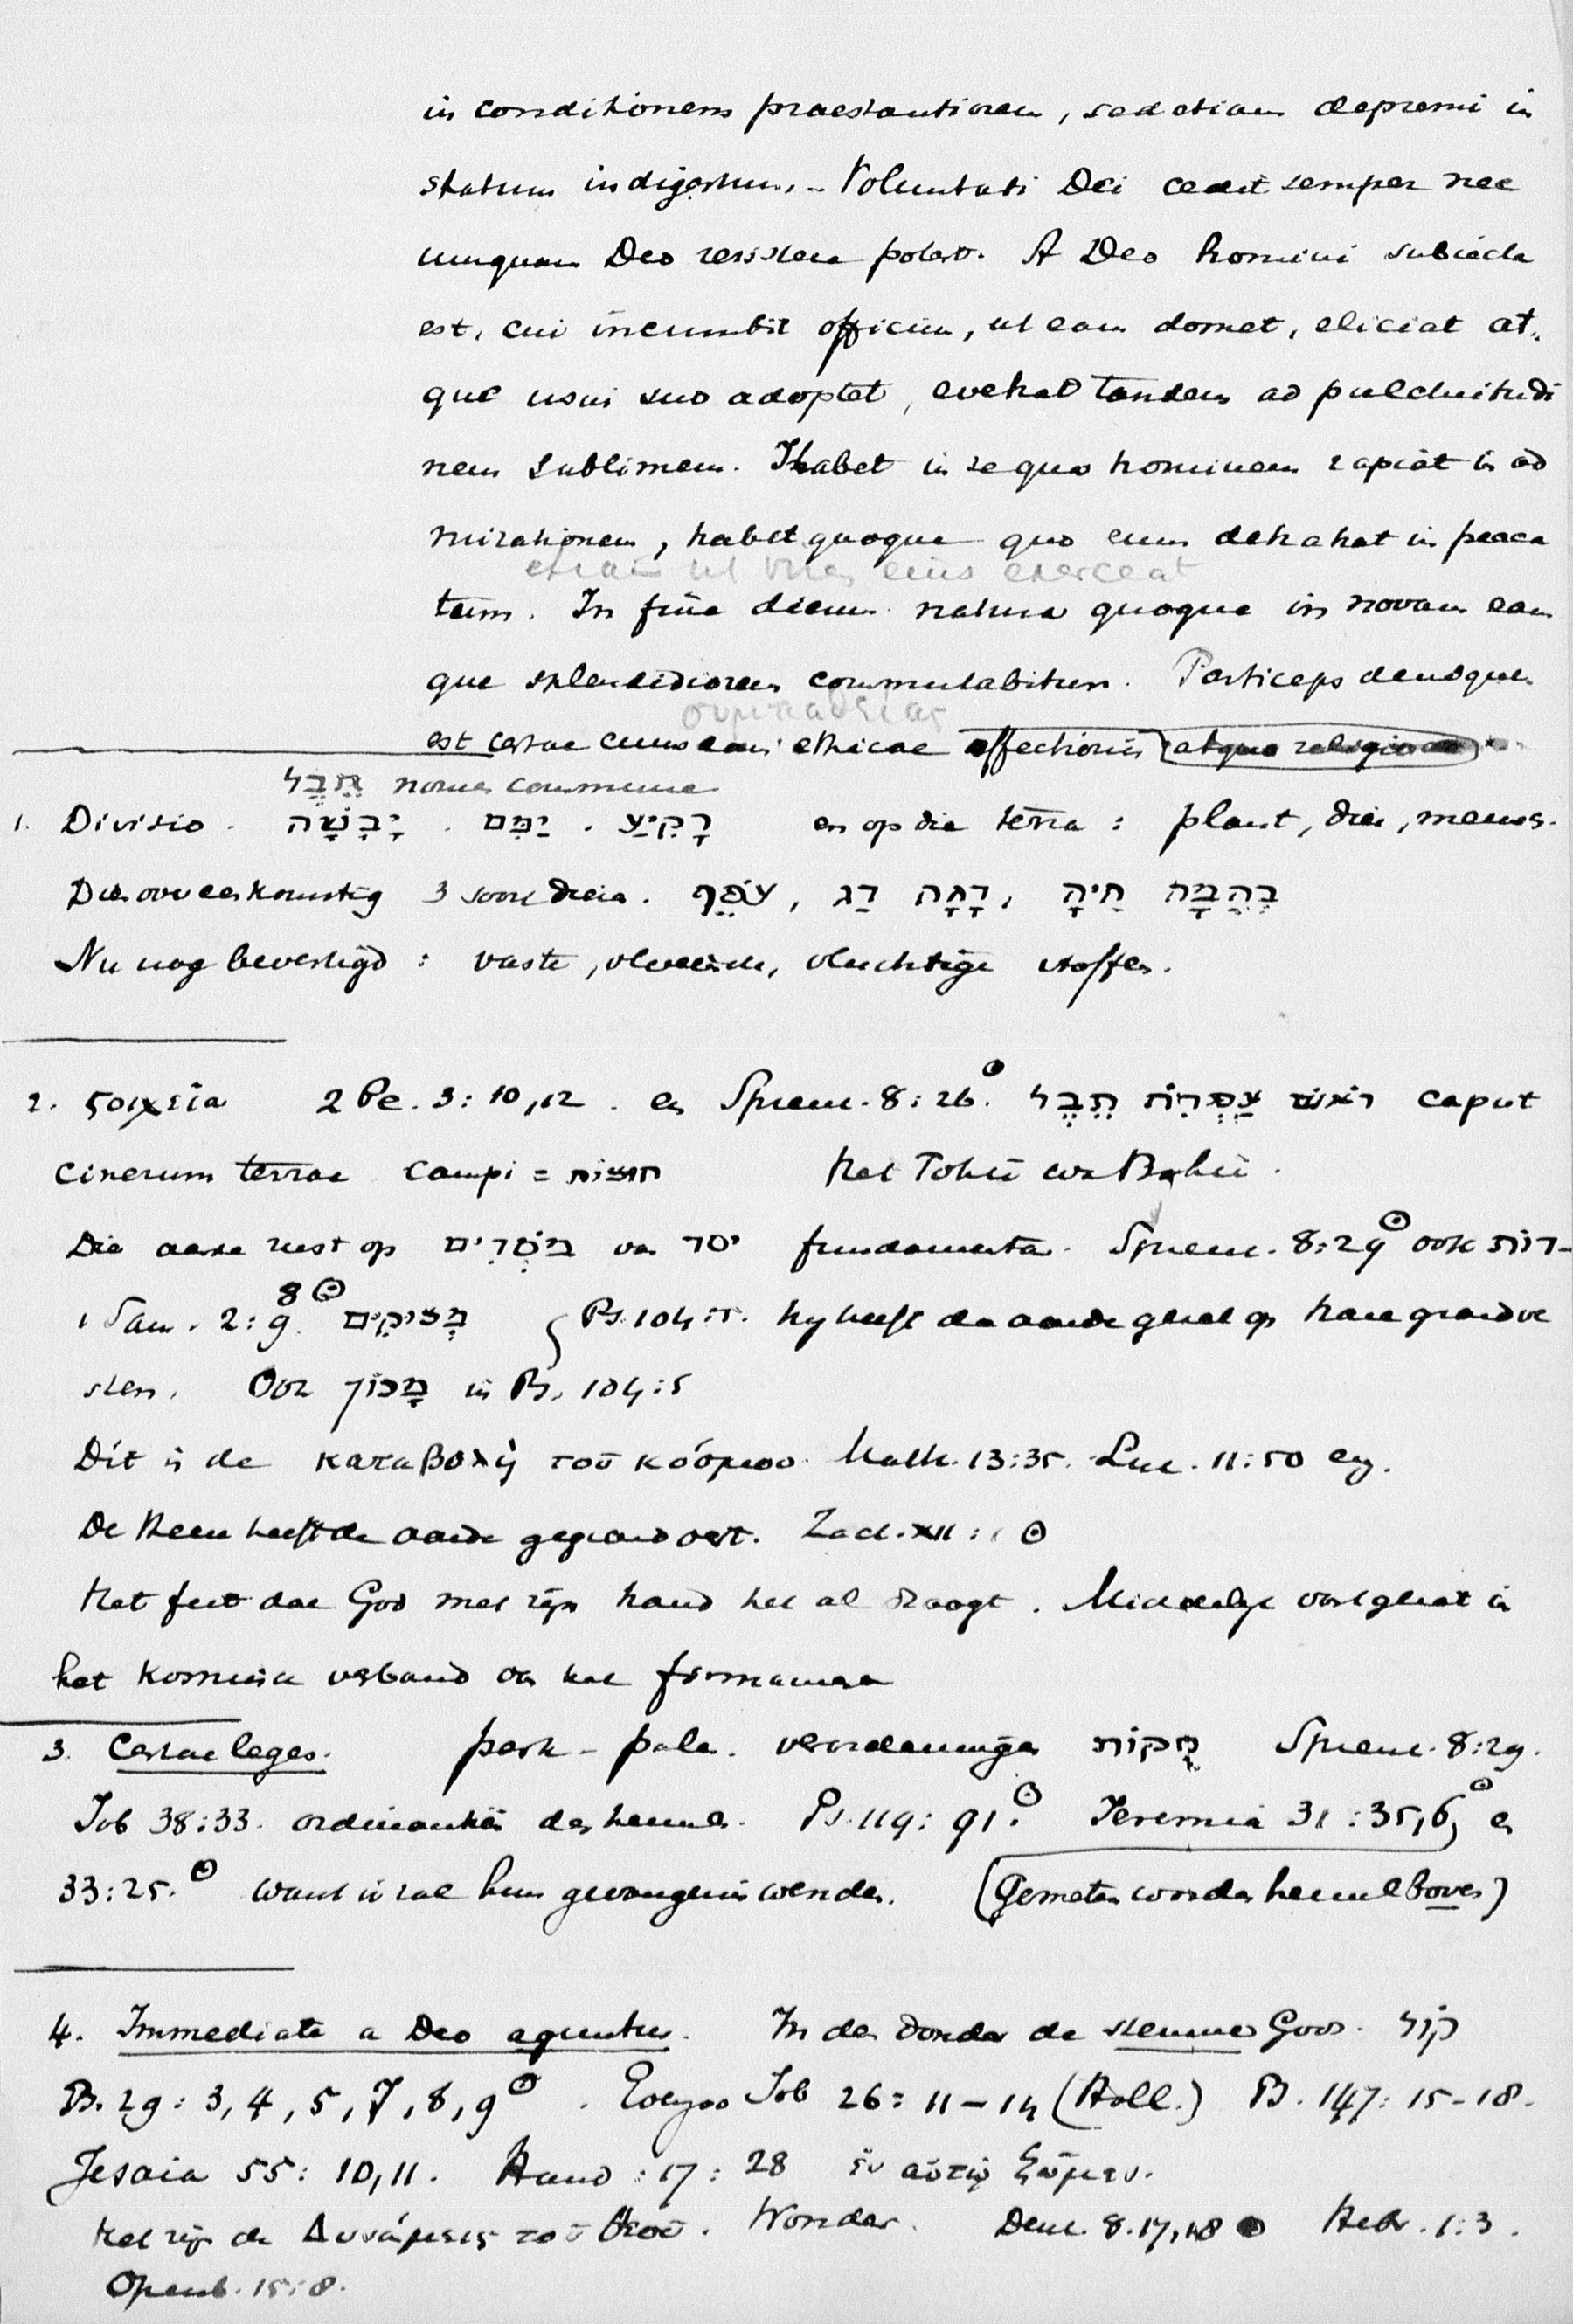 in conditionem praestantiorem, sed etiam depremi in
statum indigestum. - Voluntati Dei cedit semper nec
umquam Deo resistere potest. A Deo homini subiecta
est, cui incumbit officium, ut eam domet, eliciat at-
que usui suo adoptet, evehat tandem ad pulchritudi
nem sublimem. Habet in se quo hominem rapiat in ad
mirationem, habet quoque quo eum detrahat in pecca
etiam ut vires eius exerceat
tum. In fine dierum natura quoque in novam eam
que splendidiorem commutabitur. Particeps denique
συμπαθείας
est certae cuiusdam ethicae affectionis (atque religiosae)
תֵּבֵל nomen commune
1. Divisio. רָקִיעַ . יַמִּם . יַבָּשָׁה en op die terra: plant, dier, mensch.
Diesovereenkomstig 3 soort dieren. עוֹף, דָּגָה דַג, חַיָה בְּהֵמָה
Nu nog bevestigd: vaste, vloeiende, vluchtige stoffen.
2. ςοιχεῖα 2 Pe. 3:10,12. en Spreuk. 8:26. ראשׁ עַפְרוֹת תֵּבֵל caput
cinerum terrae campi = חוצות Het Tohû wa Bohû.
Die aarde rust op מוֹסָדִים van יסד fundamenta. Spreuk. 8:29 ook
1 Sam. 2:9. 8 מְצֻקִים Ps. 104:5. hy heeft de aarde gheel op hare grondve
sten. Ook מָכוֹן in Ps. 104:5
Dit is de καταβολὴ τοῦ κόσμου. Matth. 13:35. Luc. 11:50 en.
De Heere heeft de aarde gegrondvest. Zach. XII: 1
Het feit dat God met zijn hand het al draagt. Middelijk vastgheid in
het kosmisch verband van het firmament
3. Certae leges. perk-pale. verordeningen חֻקּוֹת Spreuk. 8:29.
Job 38:33. ordinantiën des hemels. Ps. 119:91. Jeremia 31:35,6, en
33:25. want ik zal hun gevangenis wenden. (Gemeten worden hemel boven)
4. Immediate a Deo aguntur. In den donder de stemme Gods. קוֹל
Ps. 29:3,4,5,7,8,9. Job 26:11-14 (Holl.) Ps. 147:15-18.
Jesaia 55:10,11. Hand: 17:28 ἐν αὐτῷ ζῶμεν.
Het zijn de Δυνάμεις τοῦ Θεοῦ. Wonder. Deut. 8.17,18 Hebr. 1:3.
Openb. 15:8.